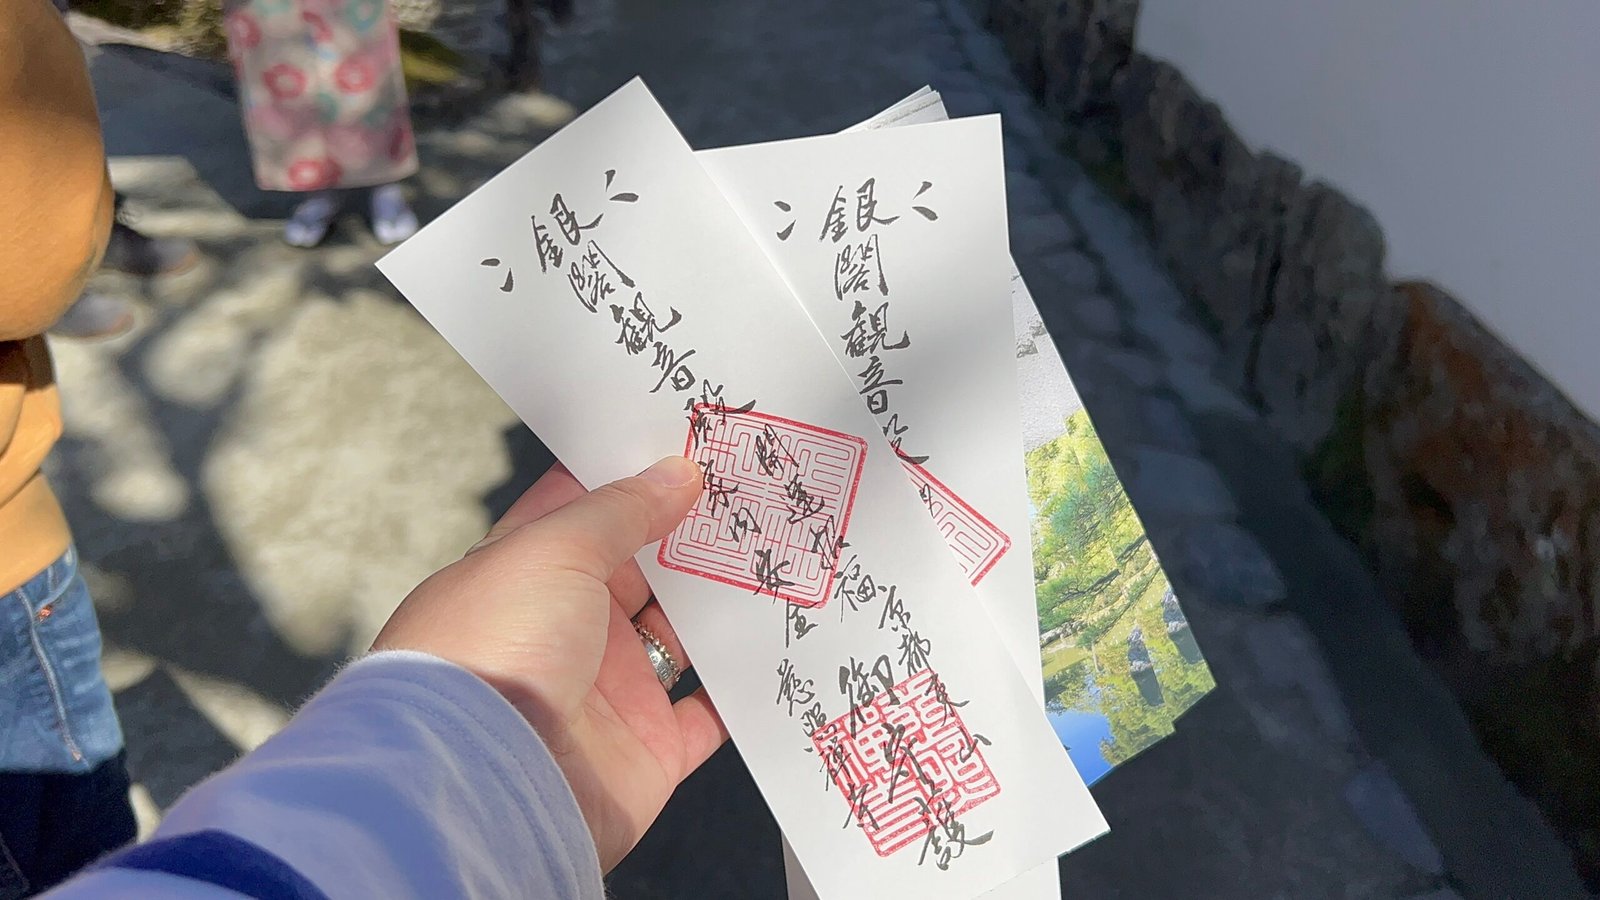 銀閣観音殿
開運招福
家内安全
京都東山
御守護
慈照禅寺
銀閣観音殿